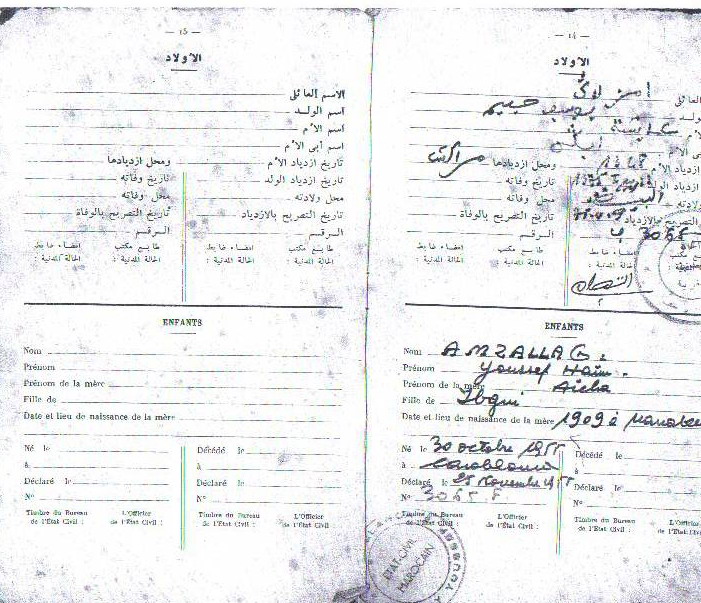 — 15 —
الأولاد
الاسم العائلي
اسم الولد
اسم الأم
اسم أبي الأم
تاريخ ازدياد الأم ومحل ازديادها
تاريخ ازدياد الولد تاريخ وفاته
محل ولادته محل وفاته
تاريخ التصريح بالازدياد تاريخ التصريح بالوفاة
الرقم الرقم
طابع مكتب الحالة المدنية : إمضاء ضابط الحالة المدنية : طابع مكتب الحالة المدنية : إمضاء ضابط الحالة المدنية :
ENFANTS
Nom
Prénom
Prénom de la mère
Fille de
Date et lieu de naissance de la mère
Né le Décédé le
à à
Déclaré le Déclaré le
N° N°
Timbre du Bureau de l'Etat Civil : L'Officier de l'Etat Civil : Timbre du Bureau de l'Etat Civil : L'Officier de l'Etat Civil :
— 14 —
الأولاد
العائلي
يوسف حييم
الأم
أبي الأم
ازدياد الأم ومحل ازديادها مراكش
تاريخ وفاته
محل وفاته
التصريح بالازدياد تاريخ التصريح بالوفاة
3065 الرقم
طابع مكتب الحالة المدنية : إمضاء ضابط الحالة المدنية :
ENFANTS
Nom AMZALLAG.
Prénom Youssef Haïm.
Prénom de la mère Aïcha
Fille de Ibgui
Date et lieu de naissance de la mère 1909 à
Né le 30 octobre 1955 Décédé le
à Casablanca à
Déclaré le 25 novembre 1955 Déclaré le
N° 3065 N°
Timbre du Bureau de l'Etat Civil : L'Officier de l'Etat Civil : Timbre du Bureau de l'Etat Civil : L'Officier de l'Etat Civil :
ETAT-CIVIL
MAROCAIN